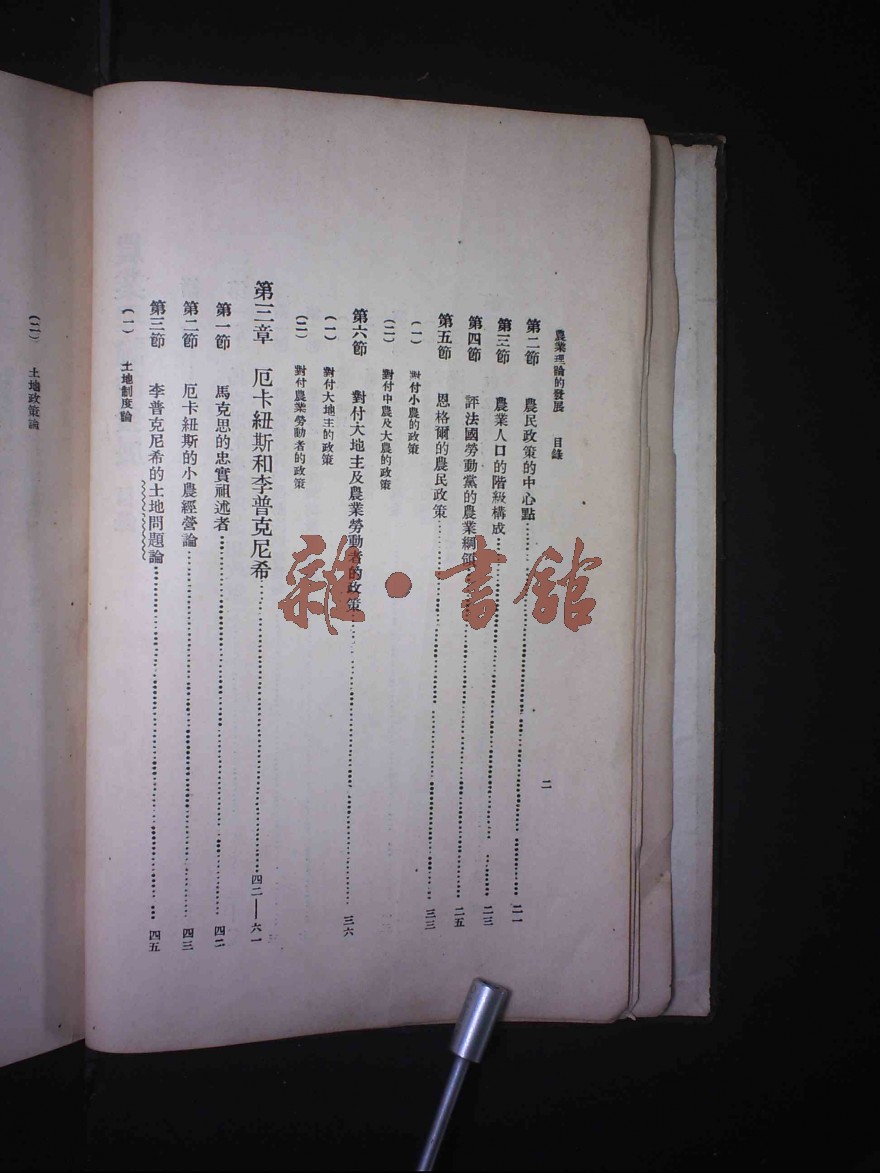 農業理論的發展 目錄 二
第二節 農民政策的中心點 二一
第三節 農業人口的階級構成 二三
第四節 評法國勞動黨的農業綱領 二五
第五節 恩格爾的農民政策 三三
(一) 對付小農的政策
(二) 對付中農及大農的政策
第六節 對付大地主及農業勞動者的政策 三六
(一) 對付大地主的政策
(二) 對付農業勞動者的政策
第三章 厄卡紐斯和李普克尼希 四二——六一
第一節 馬克思的忠實祖述者 四二
第二節 厄卡紐斯的小農經營論 四三
第三節 李普克尼希的土地問題論 四五
(一) 土地制度論
(二) 土地政策論
雜·書館